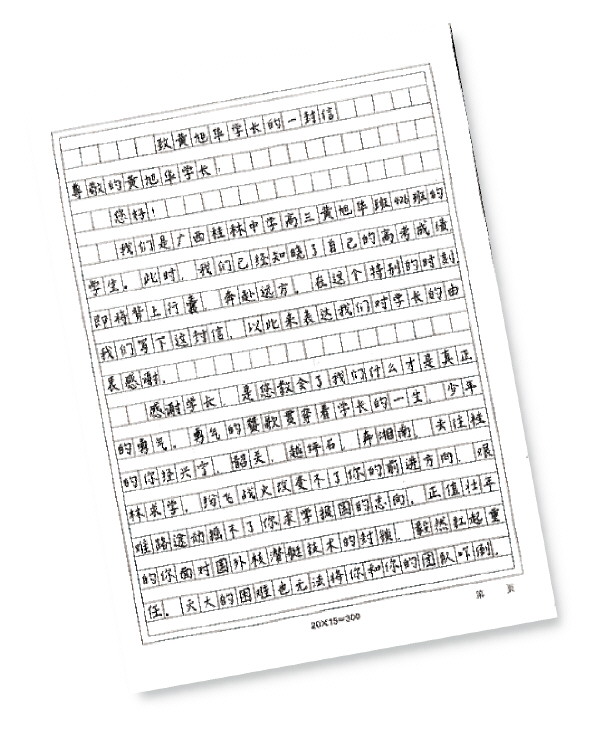 致黄旭华学长的一封信
尊敬的黄旭华学长:
您好!
我们是广西桂林中学高三黄旭华班426班的
学生。此时,我们已经知晓了自己的高考成绩,
即将背上行囊,奔赴远方。在这个特别的时刻,
我们写下这封信,以此来表达我们对学长的由
衷感谢。
感谢学长,是您教会了我们什么才是真正
的勇气。勇气的赞歌贯穿着学长的一生。少年
的你经兴宁、韶关,越坪石,奔湘南,去往桂
林求学,纷飞战火改变不了你的前进方向,艰
难路途动摇不了你求学报国的志向。正值壮年
的你面对国外核潜艇技术的封锁,毅然扛起重
任。天大的困难也无法将你和你的团队吓倒,
20×15=300
第 页